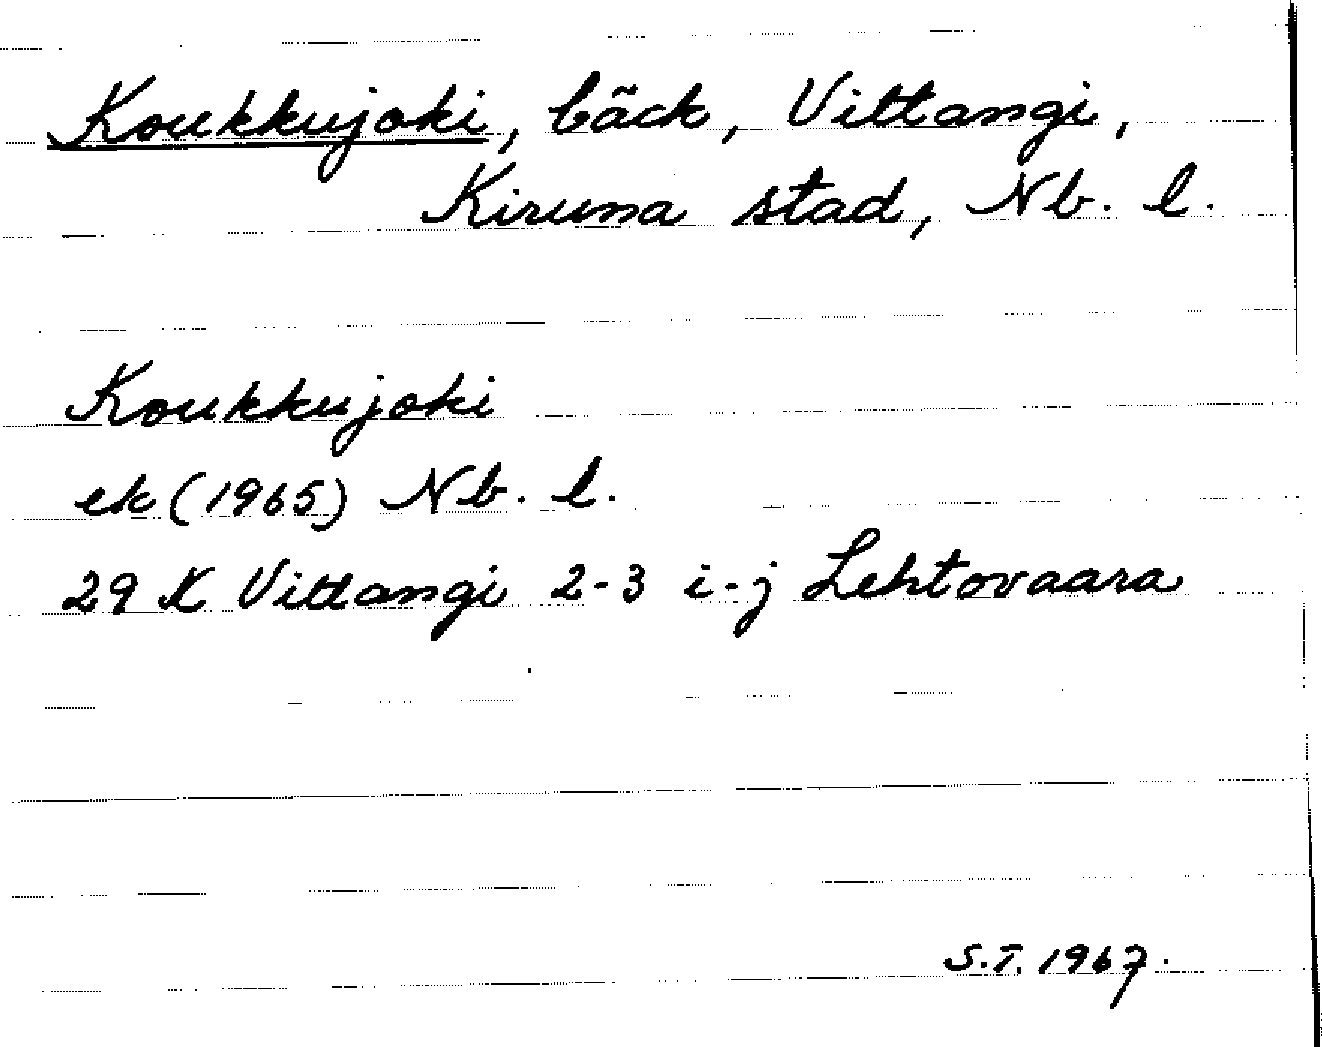 Koukkujoki, bäck, Vittangi,
Kiruna stad, Nb. l.
Koukkujoki
ek (1965) Nb. l.
29 K Vittangi 2-3 i-j Lehtovaara
S.T. 1967.